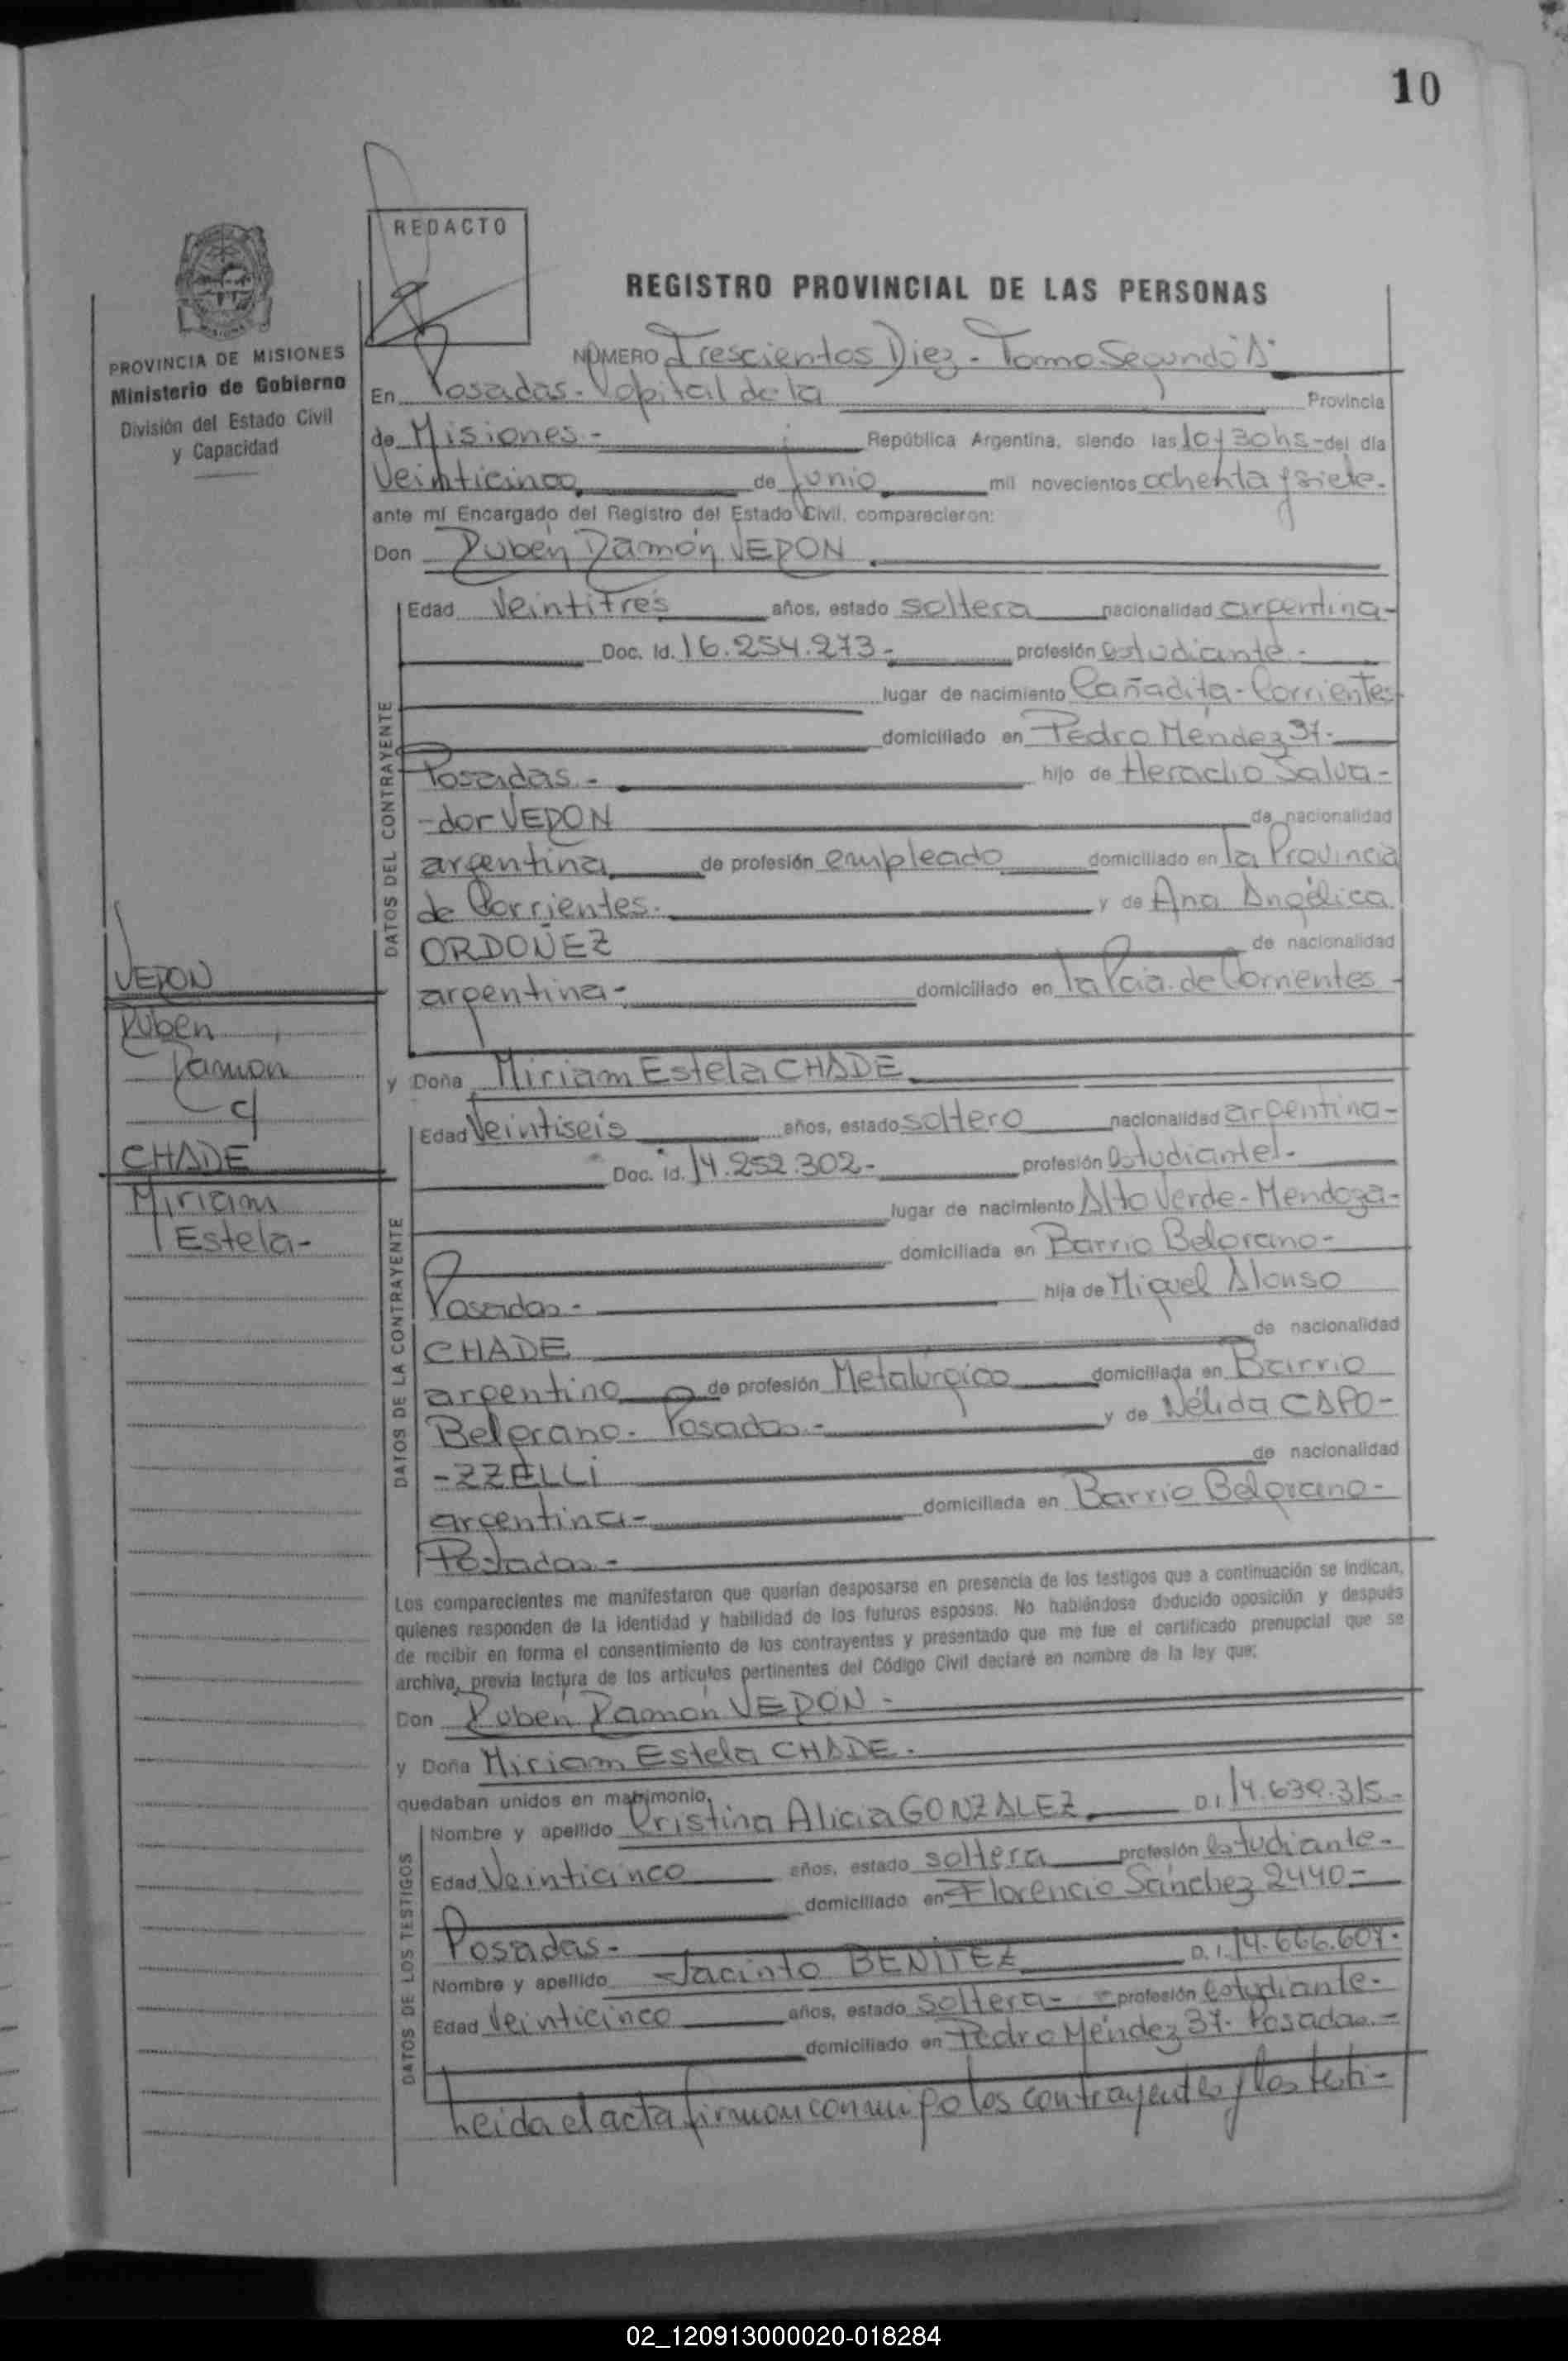 10
REDACTO
REGISTRO PROVINCIAL DE LAS PERSONAS
PROVINCIA DE MISIONES
Ministerio de Gobierno
División del Estado Civil
y Capacidad
NÚMERO Trescientos Diez - Tomo Segundo "A"
En Posadas - Capital de la Provincia
de Misiones - República Argentina, siendo las 10 y 30 hs - del día
Veinticinco de junio mil novecientos ochenta y siete.
ante mí Encargado del Registro del Estado Civil, comparecieron:
Don Rubén Ramón VERON
DATOS DEL CONTRAYENTE
Edad Veintitrés años, estado soltera nacionalidad argentina -
Doc. Id. 16.254.273 - profesión estudiante -
lugar de nacimiento Cañadita - Corrientes
domiciliado en Pedro Méndez 37 -
Posadas - hijo de Heraclio Salva-
-dor VERON de nacionalidad
argentina de profesión empleado domiciliado en la Provincia
de Corrientes. y de Ana Angélica
ORDOÑEZ de nacionalidad
argentina - domiciliado en la Pcia. de Corrientes
y Doña Miriam Estela CHADE
DATOS DE LA CONTRAYENTE
Edad Veintiseis años, estado soltero nacionalidad argentina -
Doc. Id. 14.252.302 - profesión estudiantel -
lugar de nacimiento Alto Verde - Mendoza -
domiciliada en Barrio Belgrano -
Posadas - hija de Miguel Alonso
CHADE de nacionalidad
argentino de profesión Metalúrgico domiciliada en Barrio
Belgrano - Posadas - y de Nélida CAPO-
-ZZELLI de nacionalidad
argentina - domiciliada en Barrio Belgrano -
Posadas -
Los comparecientes me manifestaron que querían desposarse en presencia de los testigos que a continuación se indican,
quienes responden de la identidad y habilidad de los futuros esposos. No habiéndose deducido oposición y después
de recibir en forma el consentimiento de los contrayentes y presentado que me fue el certificado prenupcial que se
archiva, previa lectura de los artículos pertinentes del Código Civil declaré en nombre de la ley que:
Don Rubén Ramón VERON -
y Doña Miriam Estela CHADE.
quedaban unidos en matrimonio.
DATOS DE LOS TESTIGOS
Nombre y apellido Cristina Alicia GONZALEZ D.I. 14.639.315 -
Edad Veinticinco años, estado soltera profesión estudiante -
domiciliado en Florencio Sánchez 2440 -
Posadas -
Nombre y apellido Jacinto BENITEZ D.I. 14.666.607 -
Edad Veinticinco años, estado soltera - profesión estudiante -
domiciliado en Pedro Méndez 37 - Posadas -
Leida el acta firman con mi go los contrayentes y los testi-
VERON
Ruben
Ramon
c/
CHADE
Miriam
Estela -
02_120913000020-018284